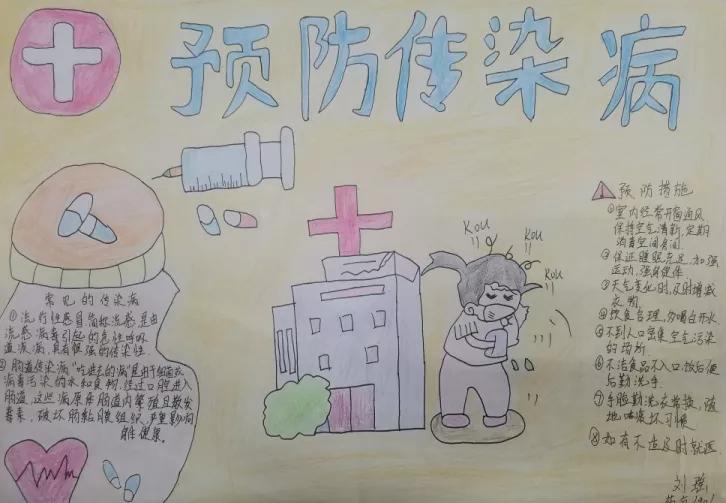 预防传染病
Kou
Kou
Kou
常见的传染病
①流行性感冒简称流感,是由
流感病毒引起的急性呼吸
道疾病,具有很强的传染性.
肠道传染病"吃进去的病"是由于细菌或
病毒污染的水和食物,经过口腔进入
肠道,这些病原在肠道内繁殖且散发
毒素,破坏肠粘膜组织,严重影响
健康。
预防措施
①室内经常开窗通风
保持空气清新,定期
消毒空间房间
②保证睡眠充足,加强
运动,强身健体
③天气变化时,及时增减
衣物
④饮食合理,勿喝白开水
⑤不到人口密集空气污染
的场所.
⑥不洁食品不入口,饭后便
后勤洗手.
⑦手脸勤洗衣常换,随
地吐痰坏习惯
⑧如有不适及时就医.
刘